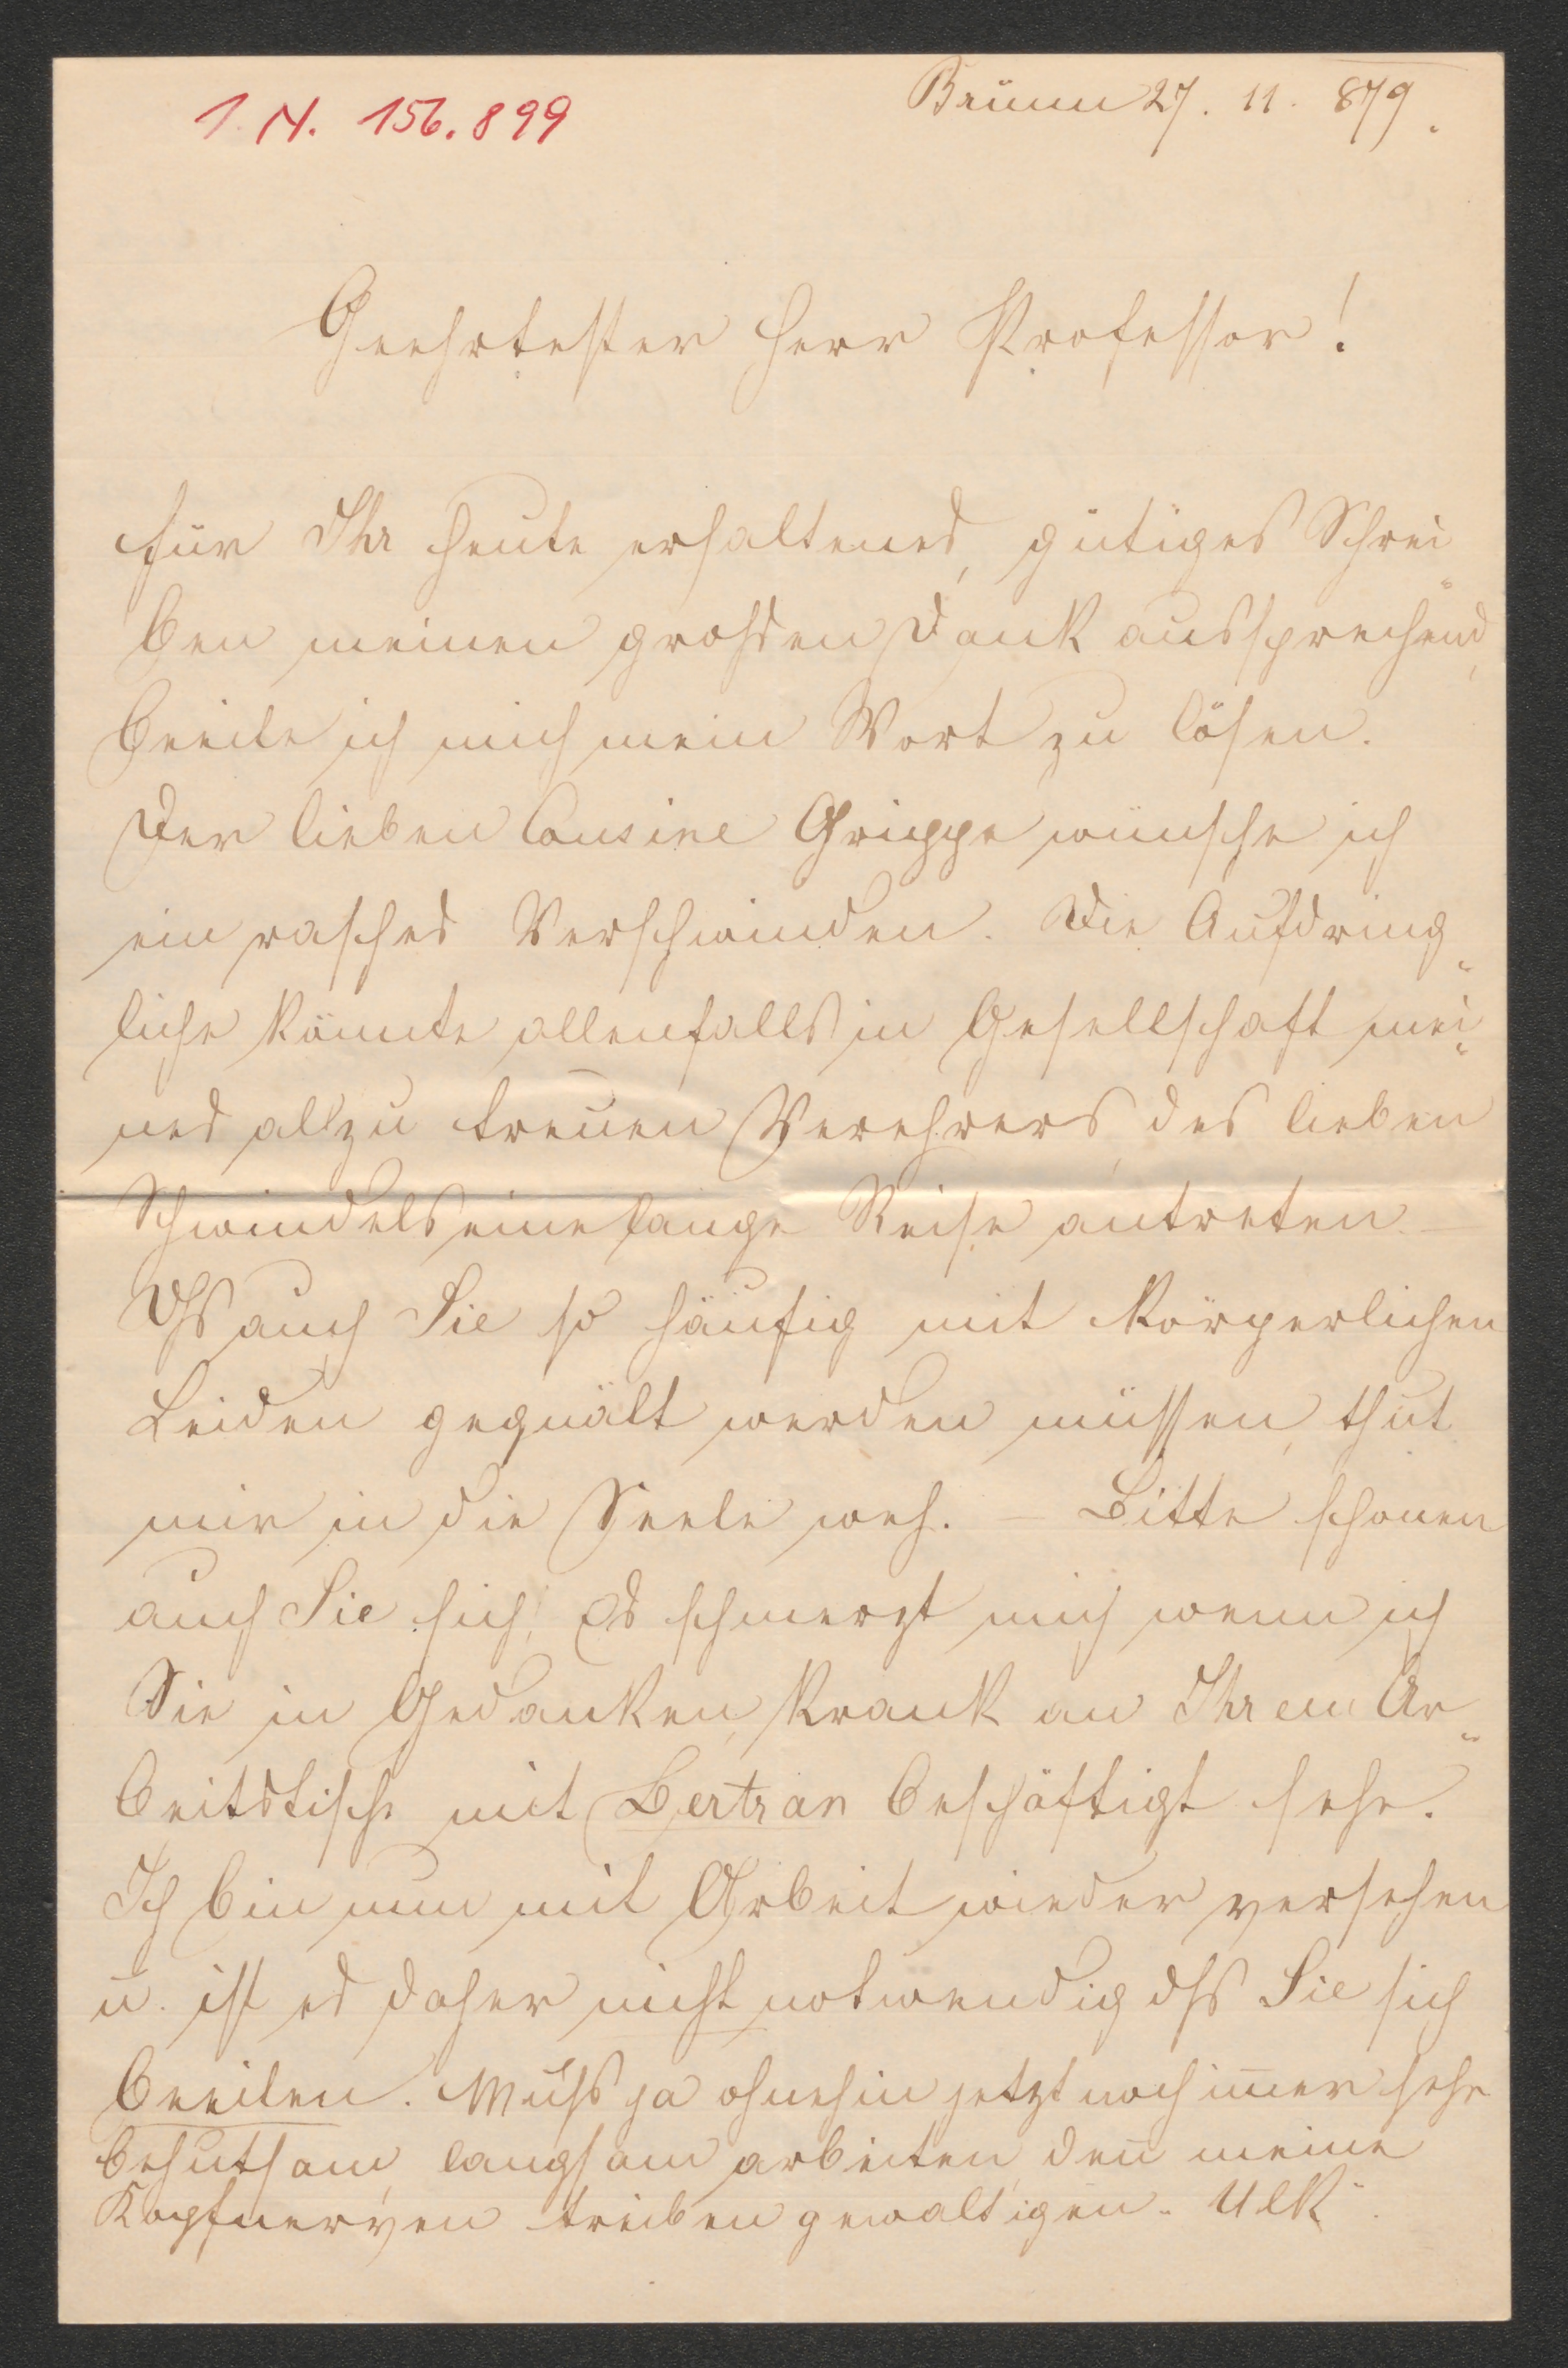 I. N. 156.899
Brünn 27. 11. 879.
Geehrtester Herr Professor!
für Ihr heute erhaltenes, gütiges Schrei„
ben meinen großen Dank aussprechend,
beeile ich mich mein Wort zu lösen.
Der lieben Cousine Grippe wünsche ich
ein rasches Verschwinden. Die Aufdring„
liche könnte allenfalls in Gesellschaft mei„
nes allzu treuen Verehrers, des lieben
Schwindels eine lange Reise antreten. —
Dß auch Sie so häufig mit körperlichen
Leiden gequält werden müssen, thut
mir in die Seele weh. — Bitte schonen
auch Sie sich! Es schmerzt mich wenn ich
Sie in Gedanken, krank an Ihrem Ar„
beitstische mit Bertran beschäftigt sehe.
Ich bin nun mit Arbeit wieder versehen
u. ist es daher nicht notwendig dß Sie sich
beeilen. Muß ja ohnehin jetzt noch im̅er sehr
behutsam, langsam arbeiten, den̅ meine
Kopfnerven treiben gewaltigen „Ulk“.